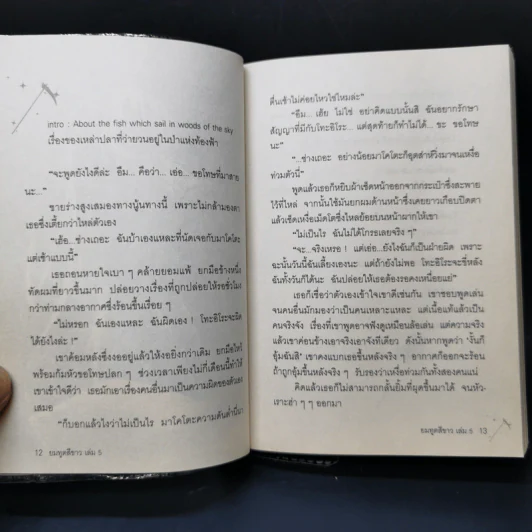 intro : About the fish which sail in woods of the sky
เรื่องของเหล่าปลาที่ว่ายวนอยู่ในป่าแห่งท้องฟ้า
“จะพูดยังไงดีล่ะ อืม... คือว่า... เอ่อ... ขอโทษที่มาสาย
นะ...”
ชายร่างสูงเสมองทางนู้นทางนี้ เพราะไม่กล้ามองตา
เธอซึ่งเตี้ยกว่าไหล่ตัวเอง
“เฮ้อ...ช่างเถอะ ฉันบ้าเองแหละที่นัดเจอกับมาโคโตะ
แต่เช้าแบบนี้”
เธอถอนหายใจเบา ๆ คล้ายยอมแพ้ ยกมือข้างหนึ่ง
ทัดผมที่ยาวขึ้นมาก ปล่อยวางเรื่องที่ถูกปล่อยให้รอชั่วโมง
กว่าท่ามกลางอากาศซึ่งร้อนขึ้นเรื่อย ๆ
“ไม่หรอก ฉันเองแหละ ฉันผิดเอง ! โทะฮิโระจะผิด
ได้ยังไงล่ะ !”
เขาค้อมหลังซึ่งงออยู่แล้วให้งอยิ่งกว่าเดิม ยกมือไหว้
พร้อมก้มหัวขอโทษปลก ๆ ช่วงเวลาเพียงไม่กี่เดือนนี้ทำให้
เขาเข้าใจดีว่า เธอมักเอาเรื่องคนอื่นมาเป็นความผิดของตัวเอง
เสมอ
“ก็บอกแล้วไงว่าไม่เป็นไร มาโคโตะความดันต่ำนี่นา
12 ยมทูตสีขาว เล่ม 5
ตื่นเช้าไม่ค่อยไหวใช่ไหมล่ะ”
“อึม... เฮ้ย ไม่ใช่ อย่าคิดแบบนั้นสิ ฉันอยากรักษา
สัญญาที่มีกับโทะฮิโระ... แต่สุดท้ายก็ทำไม่ได้... ขะ ขอโทษ
นะ”
“...ช่างเถอะ อย่างน้อยมาโคโตะก็อุตส่าห์วิ่งมาจนเหงื่อ
ท่วมตัวนี่”
พูดแล้วเธอก็หยิบผ้าเช็ดหน้าออกจากกระเป๋าซึ่งสะพาย
ไว้ที่ไหล่ จากนั้นใช้มันยกผมด้านหน้าซึ่งเคยยาวเกือบปิดตา
แล้วเช็ดเหงื่อเม็ดโตซึ่งไหลย้อยบนหน้าผากให้เขา
“ไม่เป็นไร ฉันไม่ได้โกรธเลยจริง ๆ”
“จะ...จริงเหรอ ! แต่เอ่อ...ยังไงฉันก็เป็นฝ่ายผิด เพราะ
ฉะนั้นวันนี้ฉันเลี้ยงเองนะ แต่ถ้ายังไม่พอ โทะฮิโระจะขี่หลัง
ฉันทั้งวันก็ได้นะ ฉันปล่อยให้เธอต้องรอคงเหนื่อยแย่”
เธอก็เชื่อว่าตัวเองเข้าใจเขาดีเช่นกัน เขาชอบพูดเล่น
จนคนอื่นมักมองว่าเป็นคนเหลาะแหละ แต่เนื้อแท้แล้วเป็น
คนจริงจัง เรื่องที่เขาพูดอาจฟังดูเหมือนล้อเล่น แต่ความจริง
แล้วเขาค่อนข้างเอาจริงเอาจังทีเดียว ดังนั้นหากพูดว่า ‘งั้นก็
อุ้มฉันสิ’ เขาคงแบกเธอขึ้นหลังจริง ๆ อากาศก็ออกจะร้อน
ถ้าถูกอุ้มขึ้นหลังจริง ๆ รับรองว่าเหงื่อท่วมกันทั้งสองคนแน่
คิดแล้วเธอก็ไม่สามารถกลั้นยิ้มที่ผุดขึ้นมาได้ จนหัว-
เราะฮ่า ๆ ๆ ออกมา
ยมทูตสีขาว เล่ม 5 13